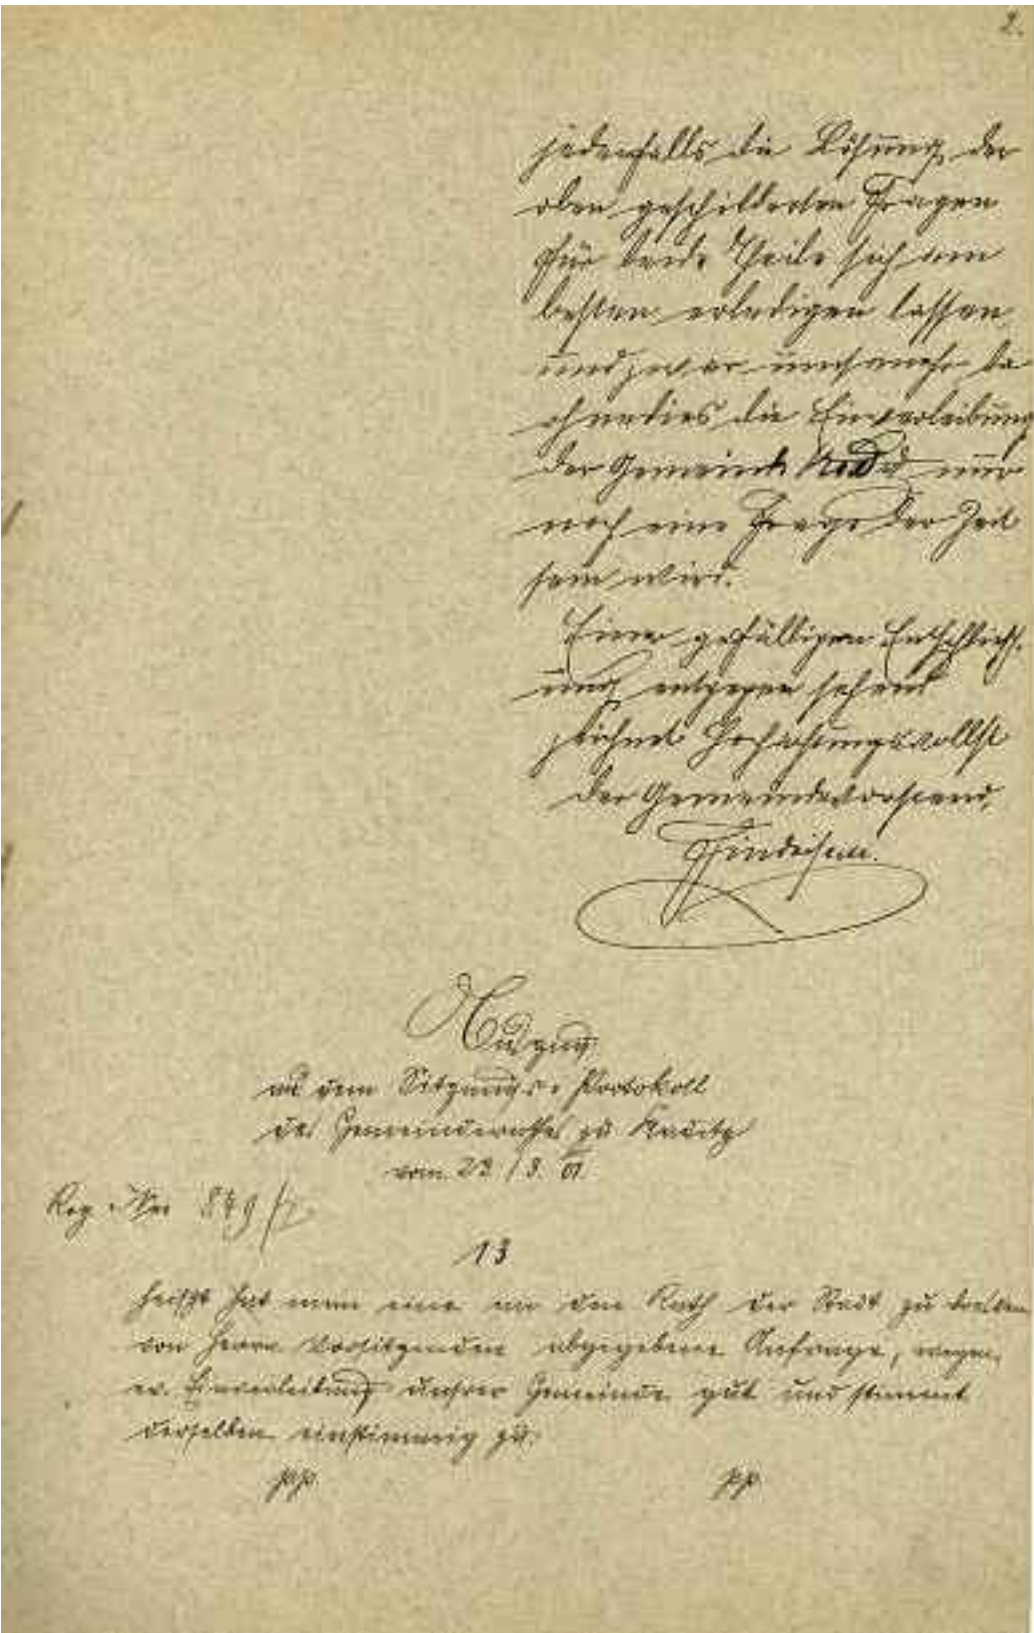 2.
jedenfalls die Lösung der
oben geschilderten Fragen
für beide Theile sich am
besten erledigen lassen
und zwar umsomehr da
ohnedies die Einverleibung
der Gemeinde nur
noch eine Frage der Zeit
sein wird.
Einer gefälligen Entschließ-
ung entgegen sehend
zeichnet Hochachtungsvollst
der Gemeindevorstand.
Findeisen.
Auszug
aus dem Sitzungs-Protokoll
des Gemeinderathes zu Kaditz
vom 22/3. 01.
Reg. 849
13
heißt hat man eine an den Rath der Stadt zu Dresden
von Herrn Vorsitzenden abgegebene Anfrage, wegen
ev. Einverleibung unsrer Gemeinde gut und stimmt
derselben einstimmig zu.
pp. pp.